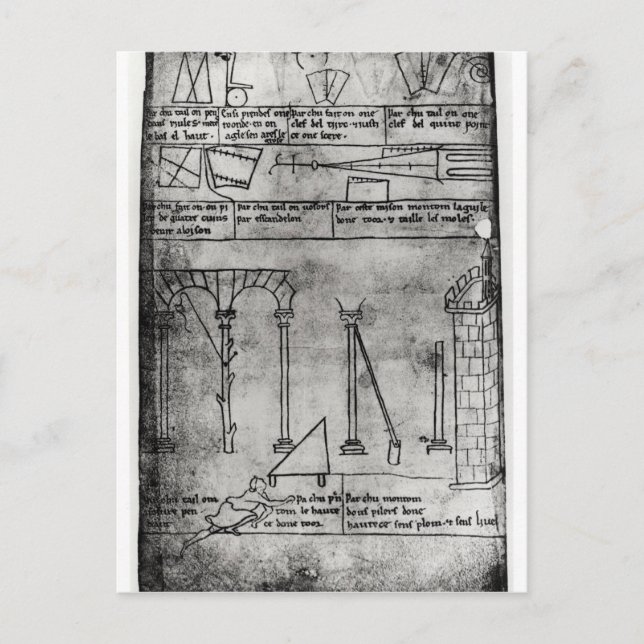 Par chu tail on pen
dans riules. metés
le bas el haut.
Ensi prendes one
roonde ta on
agle sen ares le
grose
Par chu fait on one
clef del tirc. & iusti
ce one scere.
Par chu tail on one
clef del quint point
Par chu fait on on pi
ler de quatre cuins
venir a loison
Par chu tail on vosors
par esscandelon
Par ceste raison montom la guile
done toor. & taille les moles.
chu tail om
pen
haut
Pa chu p'n
tom le hautece
ce done toor
Par chu montom
dous pilers done
hautece sens plom. & sens liuel